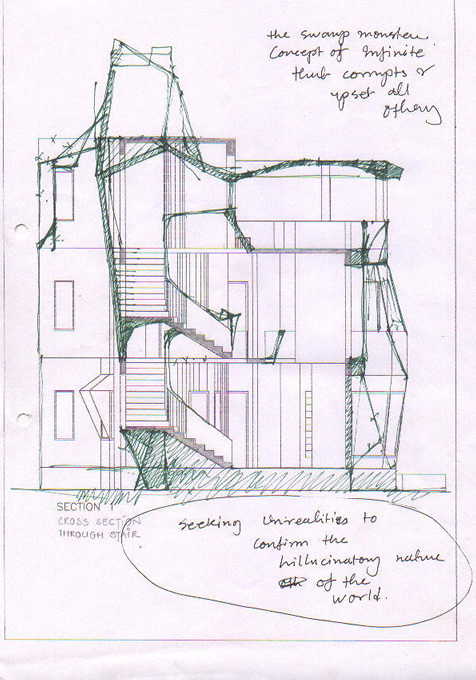 the swamp monster.
Concept of Infinite
that corrupts &
upset all
others
SECTION 1
CROSS SECTION
THROUGH STAIR
Seeking Unrealities to
confirm the
hillucinatory nature
of the
world.